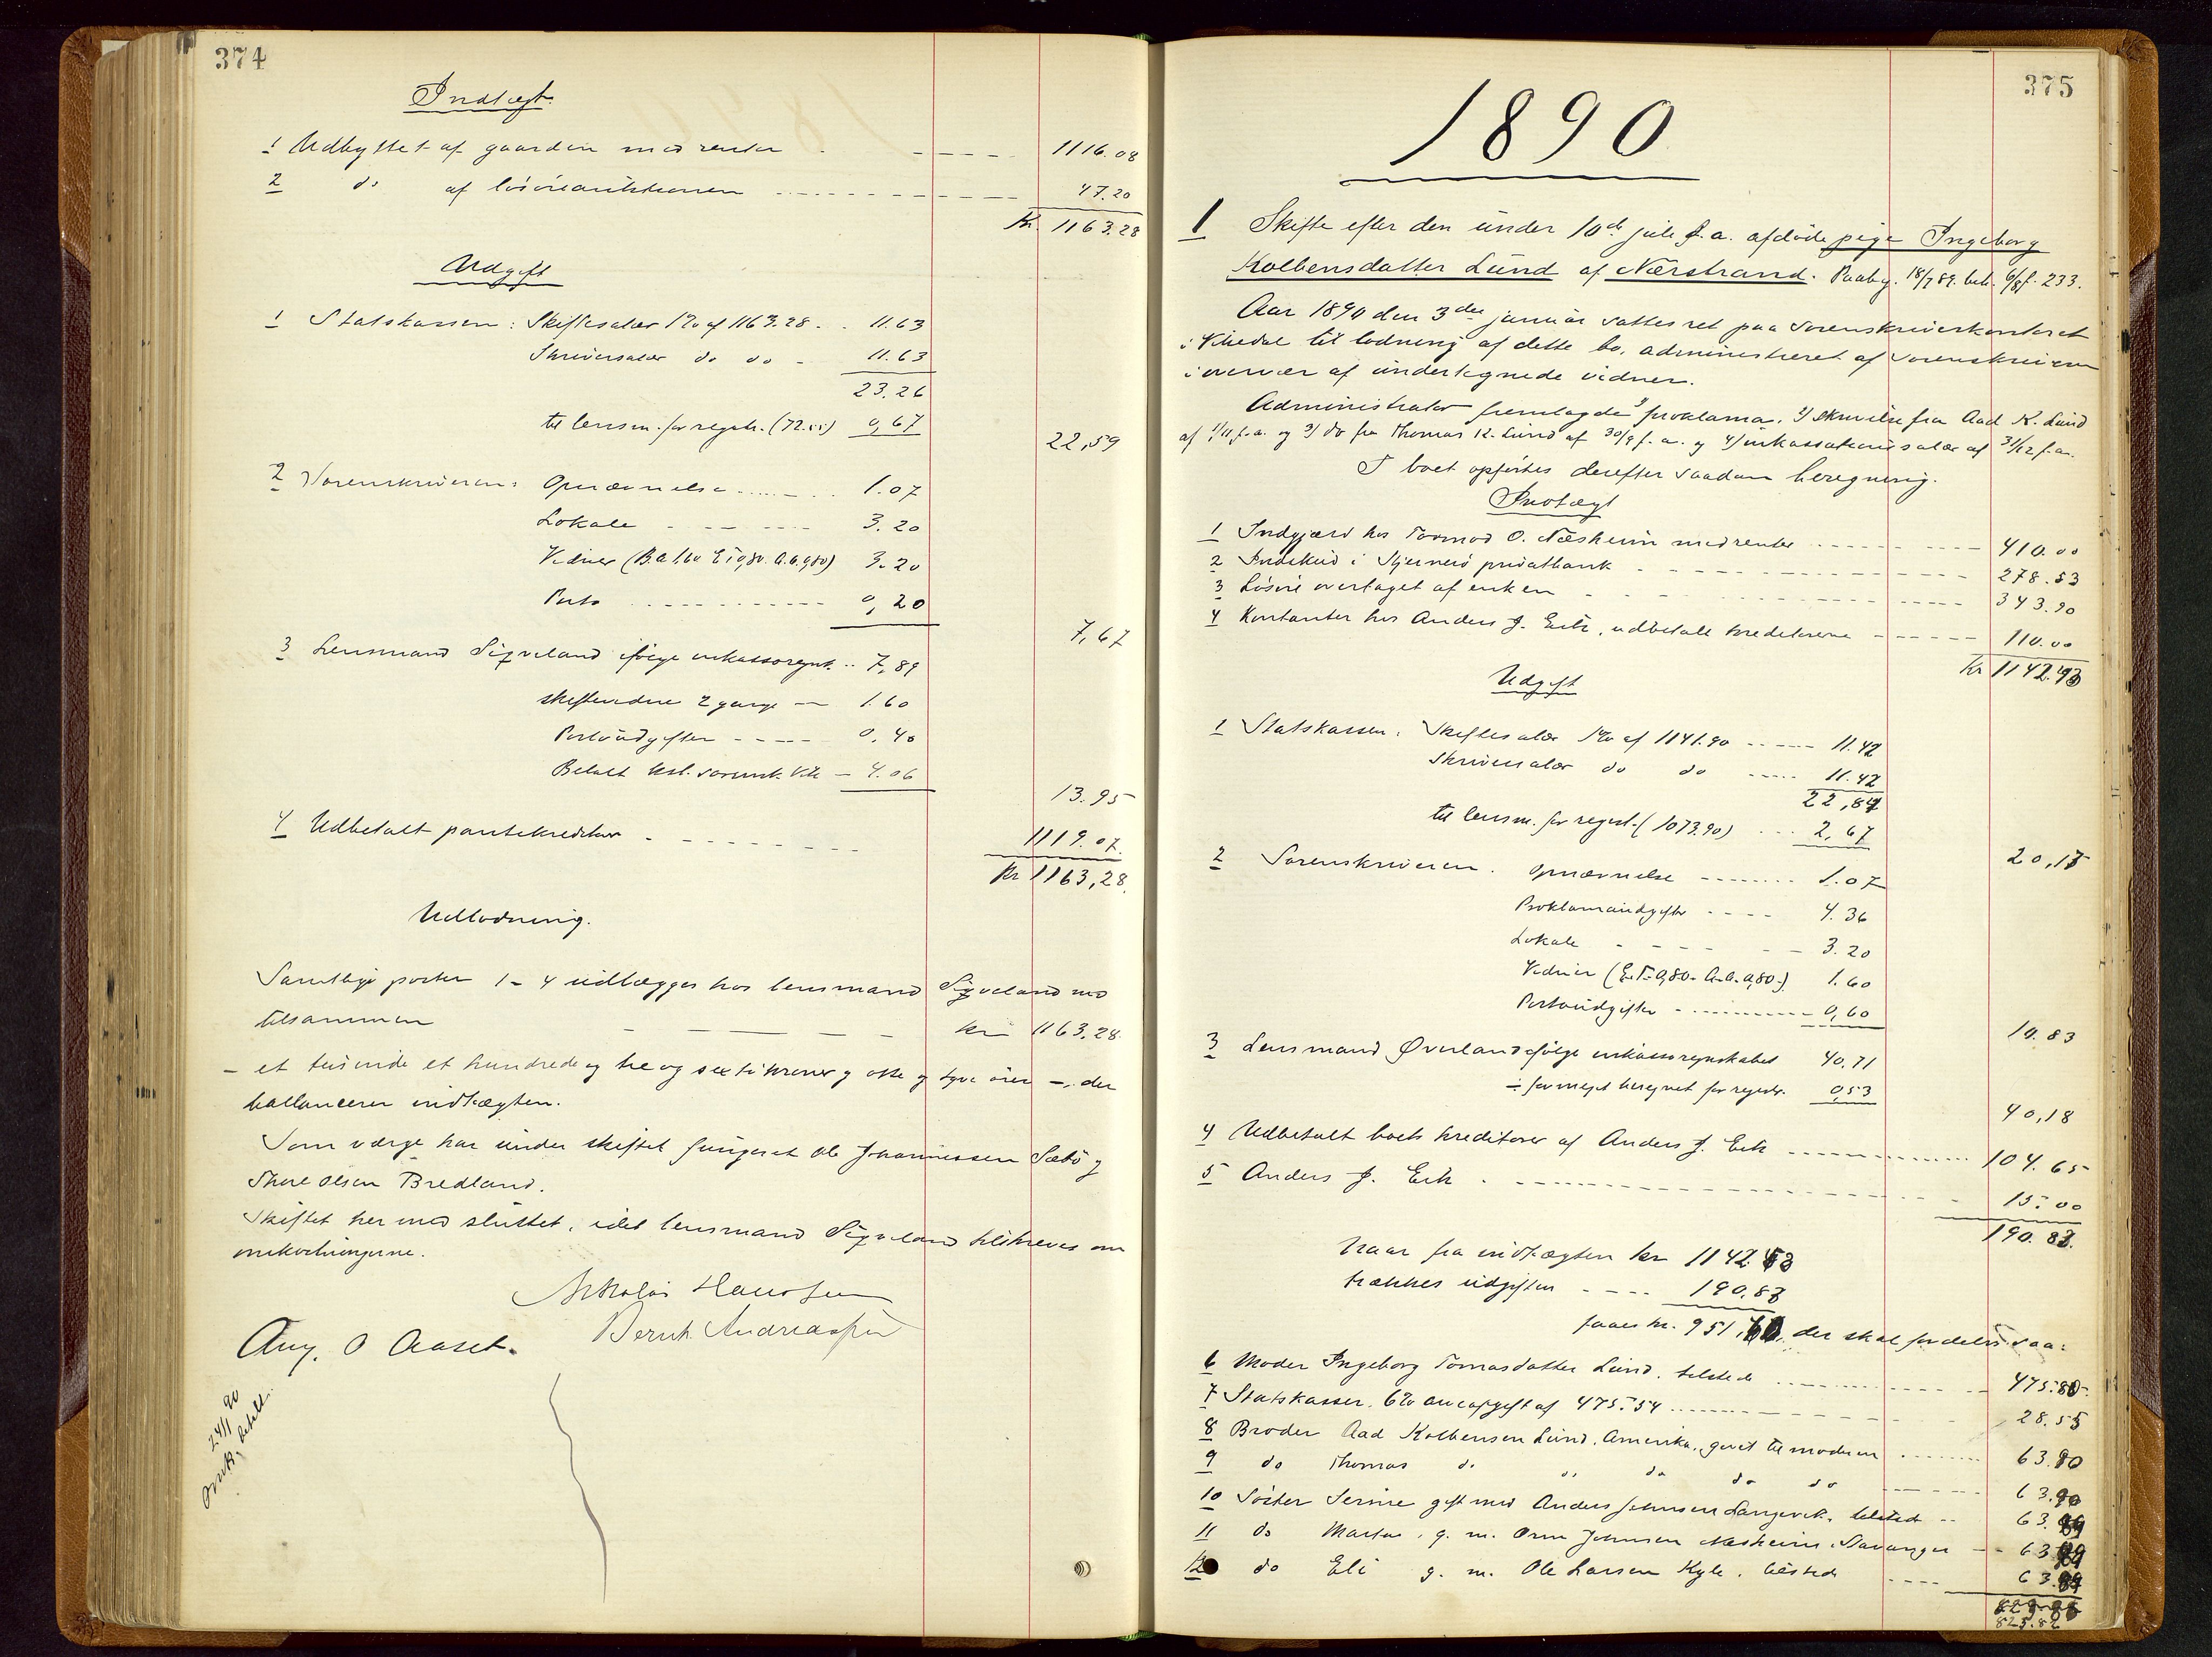 374
Indtægt.
1 Udbyttet af gaarden med renter 1116.08
2 do af løsøreauktionen 47.20
Kr. 1163.28
Udgift
1 Statskassen: Skiftesalær 1% af 1163.28 11.63
Skriversalær do do 11.63
23.26
til lensm. for registr. (72.55) 0,67 22,59
2 Sorenskriveren: Opnævnelse 1.07
Lokale 3.20
Vidner (B.A. 1,60 E. I 0,80. A.O. 0,80) 3.20
Porto 0,20
7,67
3 Lensmand Sigveland ifølge inkassoregnsk. 7,89
skiftevidne 2 gange 1.60
Portoudgifter 0.40
Betalt kst. sorensk. 4.06
13.95
4 Udbetalt pantekreditor 1119.07
Kr 1163,28
Udlodning.
Samtlige poster 1-4 udlægges hos lensmand Sigveland med
tilsammen kr 1163.28
- et tusinde et hundrede og tre og sexti kroner og otte og tyve øre -, der
ballancerer indtægten.
Som værge har under skiftet fungeret Ole Johannessen Sæbø og
Thore Olsen Bredland.
Skiftet hermed sluttet, idet lensmand Sigveland tilskreves om
omkostningerne.
Nikolai Hansen
Aug. O Aaset. Bernh. Andreassen
24/1 90
Omk. betalt.
375
1890
1 Skifte efter den under 10de juli f.a. afdøde pige Ingeborg
Kolbensdatter Lund af Nærstrand. Paabeg. 18/7 89. beh. 6/8 f. 233.
Aar 1890 den 3die januar sattes ret paa sorenskriverkontoret
i Vikedal til lodning af dette bo, administreret af sorenskriveren
i overvær af undertegnede vidner.
Administrator fremlagde 1) proklama, 2) skrivelse fra Aad K. Lund
af 1/11 f.a. og 3) do fra Thomas K. Lund af 30/9 f.a. og 4) inkassationssalær af 31/12 f.a.
I boet opførtes derefter saadan beregning.
Indtægt
1 Indgjæld hos Tormod O. Næsheim med renter 410.00
2 Indskud i Stjernerø privatbank 278.53
3 Løsøre overtaget af enken 343.90
4 Kontanter hos Anders J. Eik, udbetalt kreditorerne 110.00
Kr 1142.43
Udgift
1 Statskassen: Skiftesalær 1% af 1141.90 11.42
Skriversalær do do 11.42
22,84
til lensm. for regist. (1073.90) 2,67
20,17
2 Sorenskriveren. Opnævnelse 1.07
Proklamaudgifter 4.36
Lokale 3.20
Vidner (E.I. 0,80. A.A. 0,80.) 1.60
Portoudgifter 0,60
10.83
3 Lensmand Øverland ifølge inkassoregnskabet 40.71
÷ for meget beregnet for registr. 0,53
40,18
4 Udbetalt boets kreditorer af Anders J. Eik 104.65
5 Anders J. Eik 15.00
190.83
Naar fra indtægten kr 1142.43
trækkes udgiften 190.83
faaes kr. 951,60, der skal fordeles saa:
6 Moder Ingeborg Tomasdatter Lund, tilstede 475.80
7 Statskassen, 6% arveafgift af 475.54 28.55
8 Broder Aad Kolbensen Lund, Amerika, givet til moderen 63.90
9 do Thomas do do do do do 63.90
10 Søster Serine gift med Anders Johnsen Langevik, tilsted 63.89
11 do Marta, g. m. Orm Johnsen Næsheim, Stavanger 63.89
12 do Eli g. m. Ole Larsen Kyle, tilsted 63.89
823.82